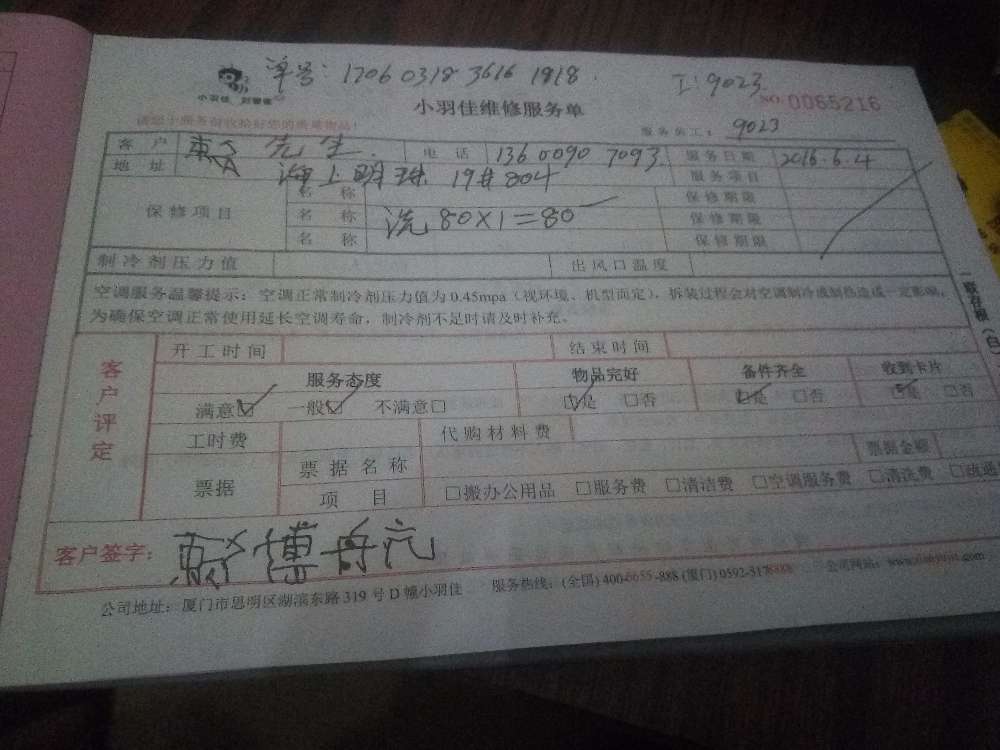 单号: 1206 0318 3616 1818.
工: 9023
小羽佳
小羽佳维修服务单
NO. 0065216
服务员工: 9023
客户 先生 电话 136 0090 7093 服务日期 2016.6.4
地址 海上明珠 19# 804 服务项目
保修项目
名称 保修期限
名称 洗 80X1=80 保修期限
名称 保修期限
制冷剂压力值 出风口温度
空调服务温馨提示: 空调正常制冷剂压力值为 0.45mpa (视环境、机型而定), 拆装过程会对空调制冷或制热造成一定影响,
为确保空调正常使用延长空调寿命, 制冷剂不足时请及时补充。
客户评定
开工时间 结束时间
服务态度 物品完好 备件齐全 收到卡片
满意□ 一般□ 不满意□ □是 □否 □是 □否 □是 □否
工时费 代购材料费
票据 票据名称 票据金额
项目 □搬办公用品 □服务费 □清洁费 □空调服务费 □清洗费
客户签字:
公司地址: 厦门市思明区湖滨东路 319 号 D 幢小羽佳 服务热线: (全国) 400-6655-888 (厦门) 0592-3178888 公司网站:
一联存根 (白